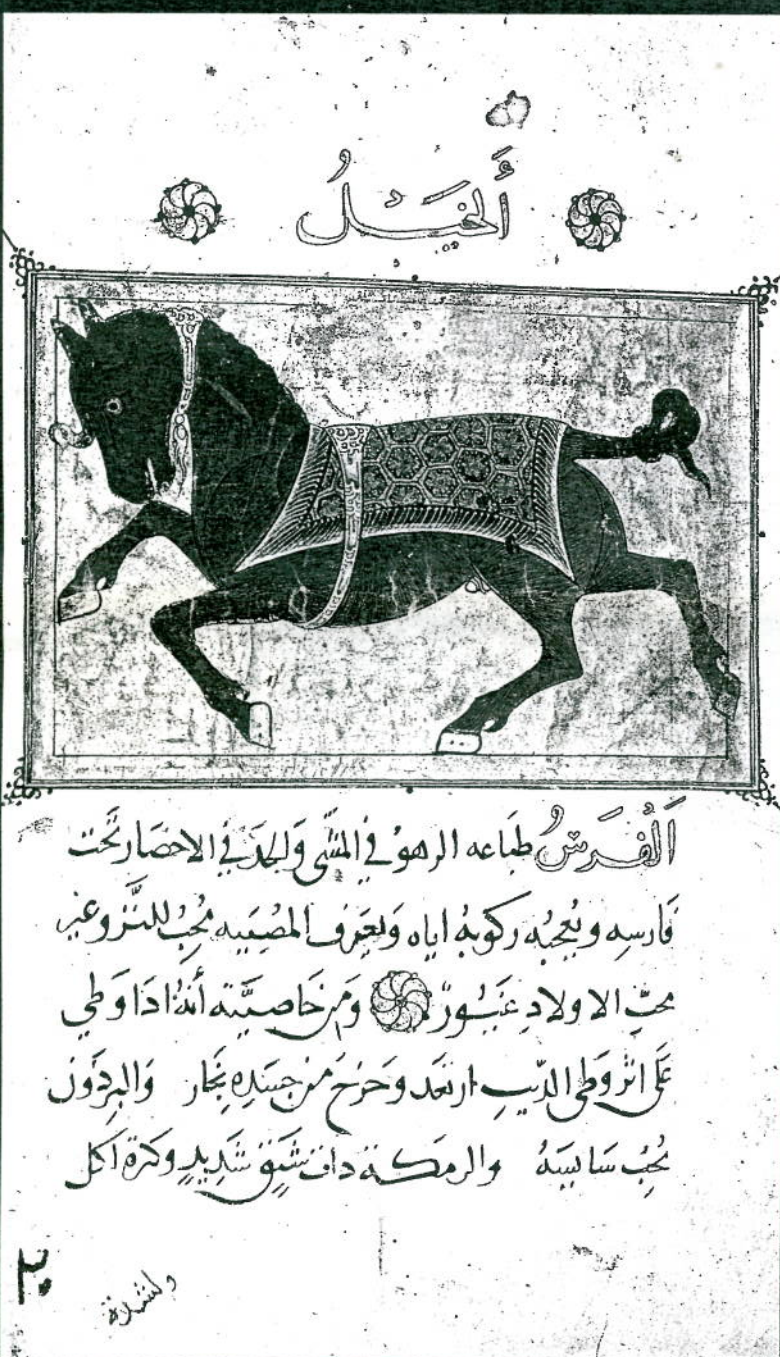 أَلخَيْلُ
اَلْفَرَسُ طبَاعه الرهوُ في المشَّي وَالجدّ في الاحضَار تَّحت
فَارسِه ويُعجبُه ركوبهُ اياه وَيعَرف المصُيبه مُحِبُ للنَّزو غير
محبّ الاولادِ غَيُورٌ وَمنْ خَاصيَّته أنهُ اذَا وَطي
عَلى اثر وَطى الذيبِ ارتعَد وَخرَج مِنْ جسَدهِ بُخار وَالبردَون
يُحِبُ سَايسَهُ والرمَكة ذات شَبَقٍ شَديدٍ وكثرة اكل
٢٠